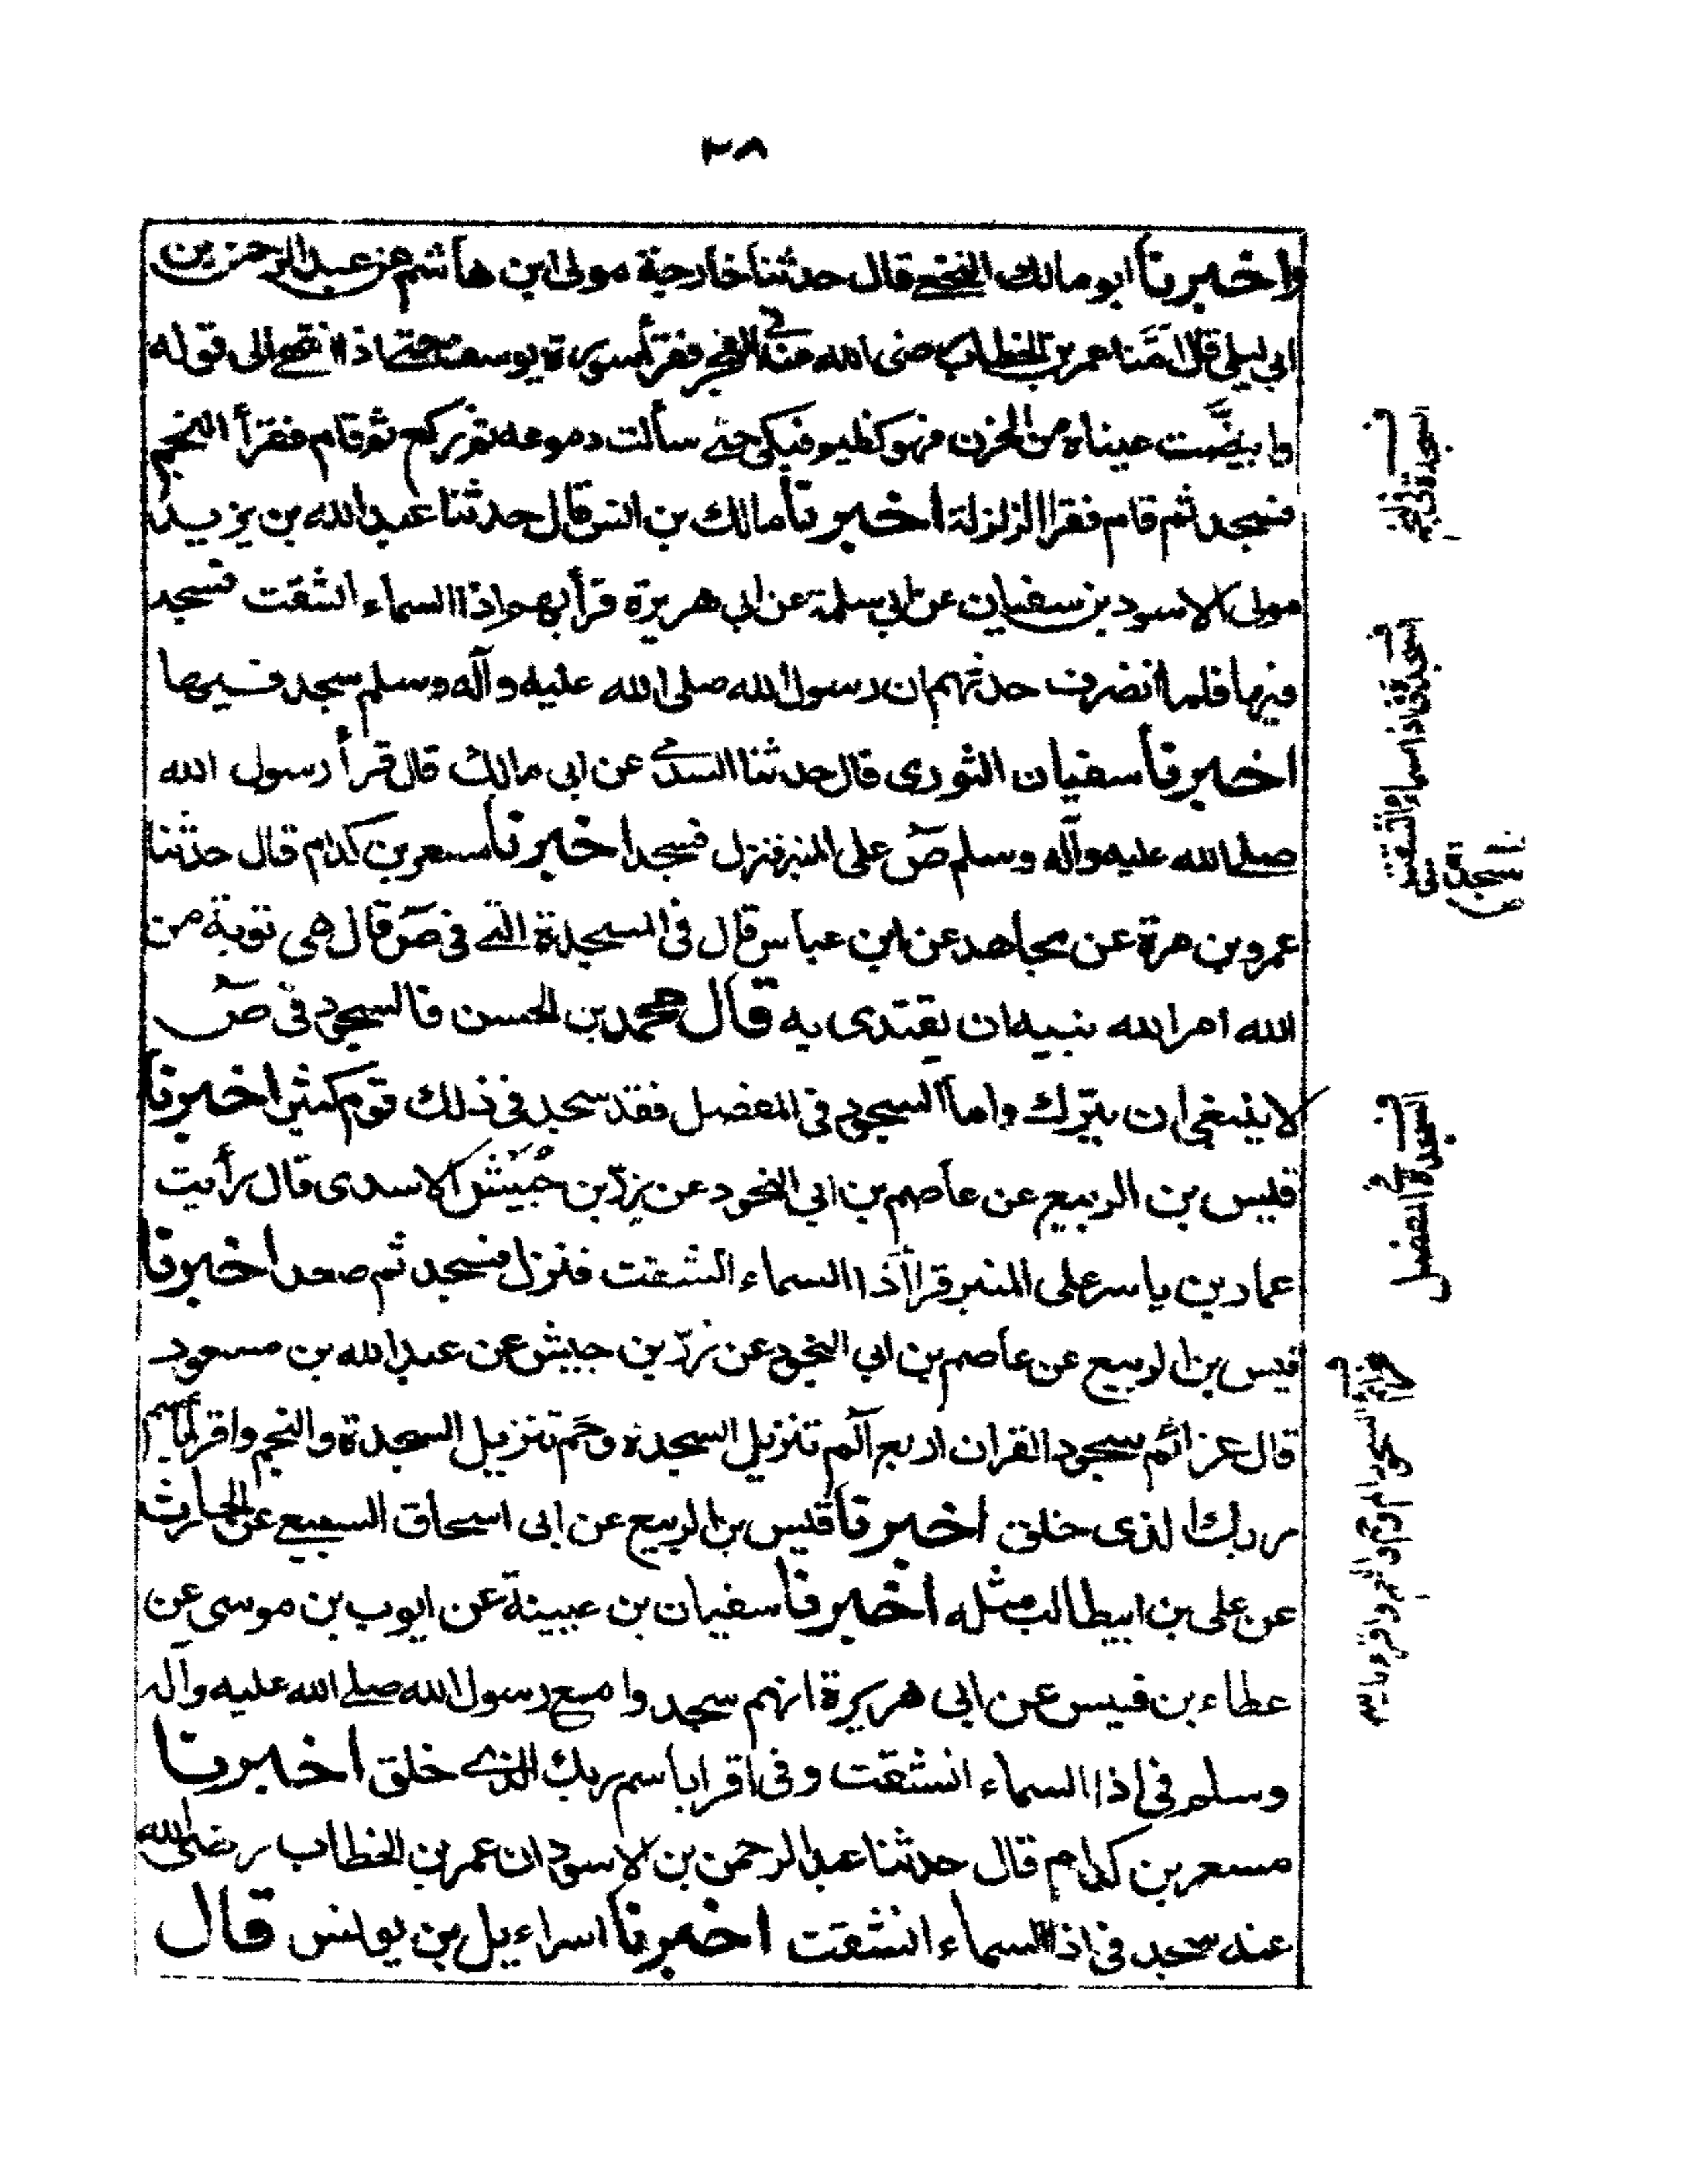 ٣٨
واخبرنا ابو مالك النخعي قال حدثنا خارجة مولى ابن هاشم عن عبد الرحمن بن
ابي ليلى قال امنا عمر بن الخطاب رضى الله عنه في الفجر فقرأ سورة يوسف حتى اذا انتهى الى قوله
وابيضت عيناه من الحزن فهو كظيم فبكى حتى سألت دموعه ثم ركع ثم قام فقرأ النجم
فسجد ثم قام فقرا الزلزلة اخبرنا مالك بن انس قال حدثنا عبد الله بن يزيد
مولى الاسود بن سفيان عن ابي سلمة عن ابي هريرة قرأ بهم اذا السماء انشقت فسجد
فيها فلما انصرف حدثهم ان رسول الله صلى الله عليه وآله وسلم سجد فيها
اخبرنا سفيان الثورى قال حدثنا السدى عن ابى مالك قال قرأ رسول الله
صلى الله عليه وآله وسلم صٓ على المنبر فنزل فسجد اخبرنا مسعر بن كدام قال حدثنا
عمرو بن مرة عن مجاهد عن ابن عباس قال فى السجدة التى فى صٓ قال هى توبة من
الله امر الله نبيه ان يقتدى به قال محمد بن الحسن فالسجود فى صٓ
لا ينبغى ان يترك واما السجود فى المفصل فقد سجد فى ذلك قوم كثير اخبرنا
قيس بن الربيع عن عاصم بن ابي النجود عن زرّ بن حُبَيش الاسدى قال رأيت
عمار بن ياسر على المنبر قرا اذا السماء انشقت فنزل فسجد ثم صعد اخبرنا
قيس بن الربيع عن عاصم بن ابي النجود عن زرّ بن حبيش عن عبد الله بن مسعود
قال عزائم سجود القران اربع آلم تنزيل السجدة وحٓم تنزيل السجدة والنجم واقرا باسم
ربك الذى خلق اخبرنا قيس بن الربيع عن ابى اسحاق السبيع عن الحارث
عن على بن ابيطالب مثله اخبرنا سفيان بن عيينة عن ايوب بن موسى عن
عطاء بن قيس عن ابى هريرة انهم سجدوا مع رسول الله صلى الله عليه وآله
وسلم فى اذا السماء انشقت وفى اقرا باسم ربك الذى خلق اخبرنا
مسعر بن كدام قال حدثنا عبد الرحمن بن الاسود ان عمر بن الخطاب رضى الله
عنه سجد فى اذا السماء انشقت اخبرنا اسراءيل بن يونس قال
السجدة فى النجم
السجدة فى اذا السماء انشقت
سجدة فى
السجدة فى المفصل